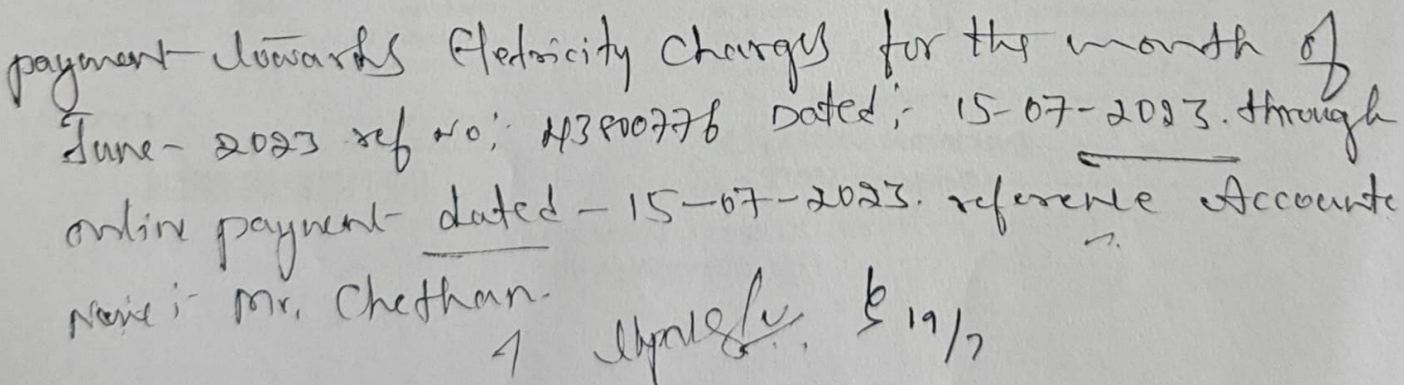 payment towards Eletricity Charges for the month of
June- 2023 ref No: 43800776 Dated:- 15-07-2023. through
online payment dated - 15-07-2023. reference Accounts
Name:- Mr. Chethan.
19/7